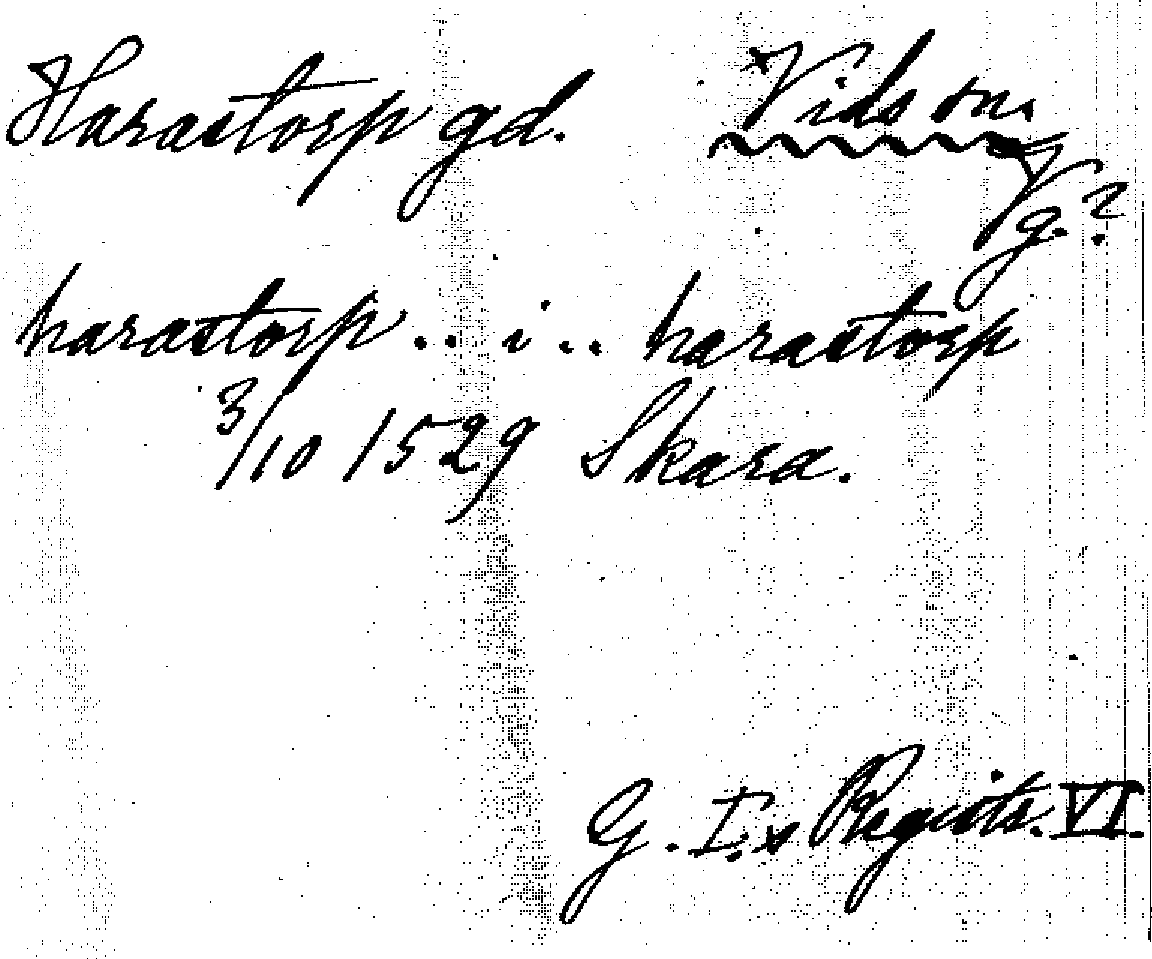 Harastorp gd. Vids sn.
Vg.?
harastorp .. i .. harastorp
3/10 1529 Skara.
G. I:s Registr. VI.